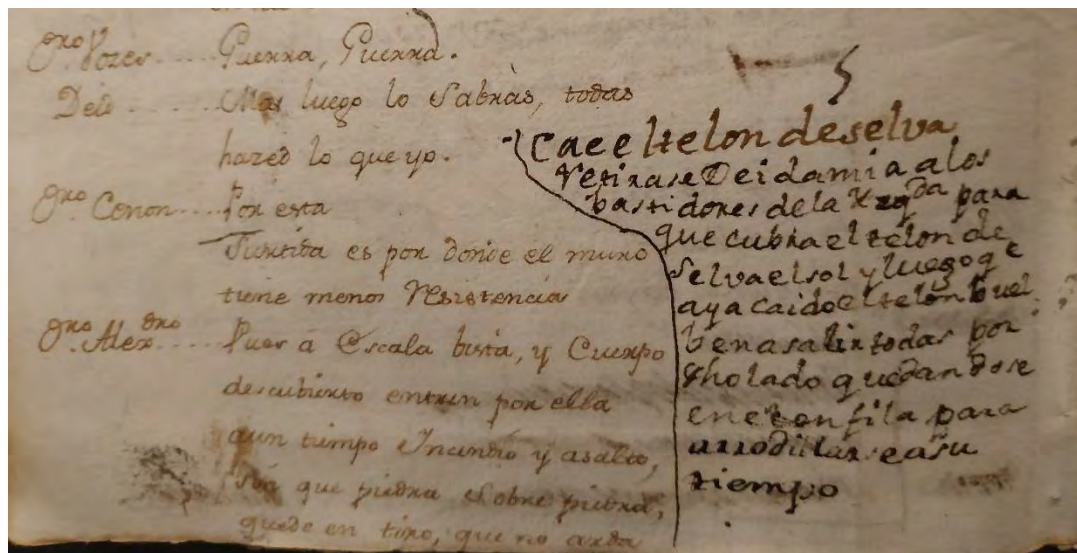 Dro. Vozes .... Guerra, Guerra.
Deid ........ Mas luego lo Sabràs, todas
hazed lo que yo.
Dro. Cenon .... Por esta
Surtida es por donde el muro
tiene menos resistencia
Dro. Alexdro .... Pues â Escala bista, y Cuerpo
descubierto entren por ella
aun tiempo Incendio y asalto,
sin que piedra sobre piedra,
quede en tiro, que no arda
Cae el telon de selva
retirase Deidamia a los
bastidores de la Yzqda para
que cubra el telon de
selva el sol y luego qe
aya caido el telon buel
ben a salir todas por
dho lado quedandose
en el en fila para
arrodillarse a su
tiempo